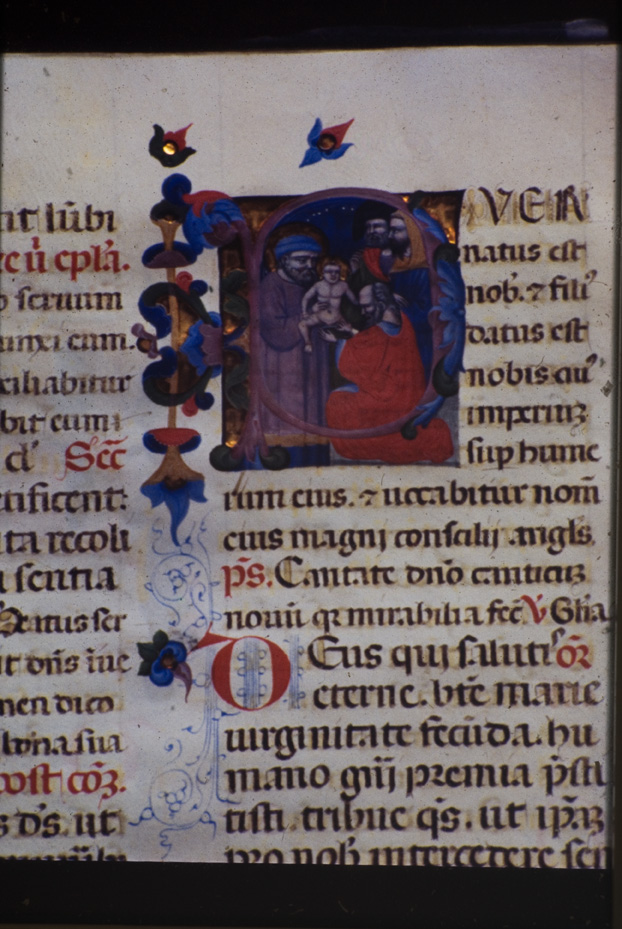 it lūbi
epła.
seruum
unxi eum.
xiliabitur
bit eum
Sec̄
rificent:
ta recoli
sentia
Natus ser
it dn̄s
men dico
bona sua
post cōꝫ.
s d̄s. ut
P VER
natus est
nob̄. ⁊ fili᾽
datus est
nobis. cui᾽
imperiuꝫ
sup hume
rum eius. ⁊ uocabitur nom̄
eius magnj consilij angls̄.
p̄s. Cantate dnō canticuꝫ
nouū qꝛ mirabilia fec̄. V̄ Glīa
DEus quj saluti᾽ ōꝛ
eterne. btē marie
uirginitate fecūda. hu
mano gn̄j premia p̄sti
tisti. tribue q̄s. ut ip̄aꝫ
pro nob̄ intercedere sen